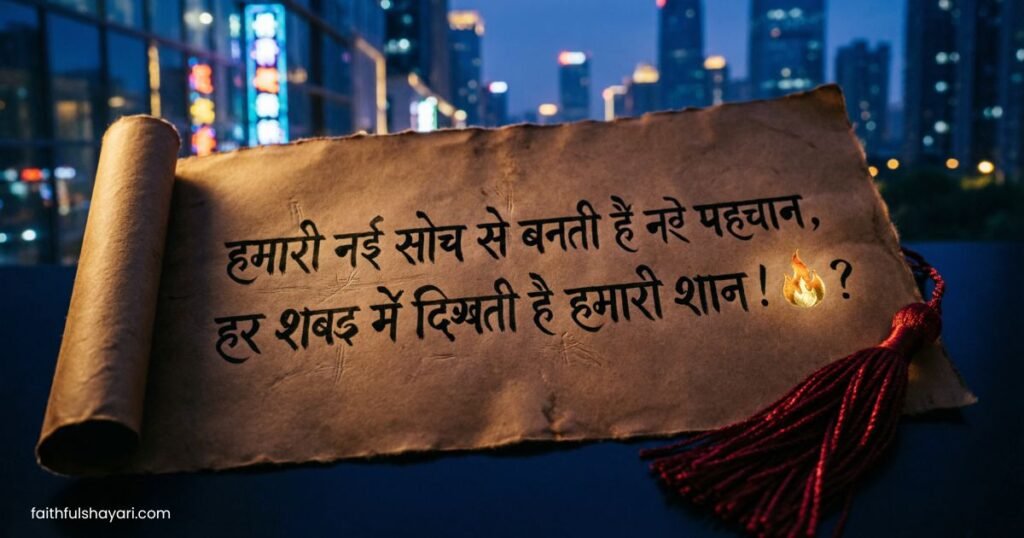 हमारी नई सोच से बनती है नई पहचान,
हर शबद में दिखती है हमारी शान! 🔥 ?
faithfulshayari.com